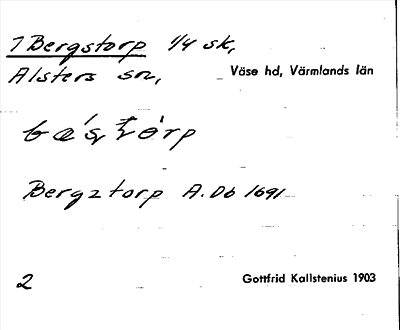 1 Bergstorp 1/4 sk,
Alsters sn, Väse hd, Värmlands län
Bergztorp A.Db 1691
2 Gottfrid Kallstenius 1903